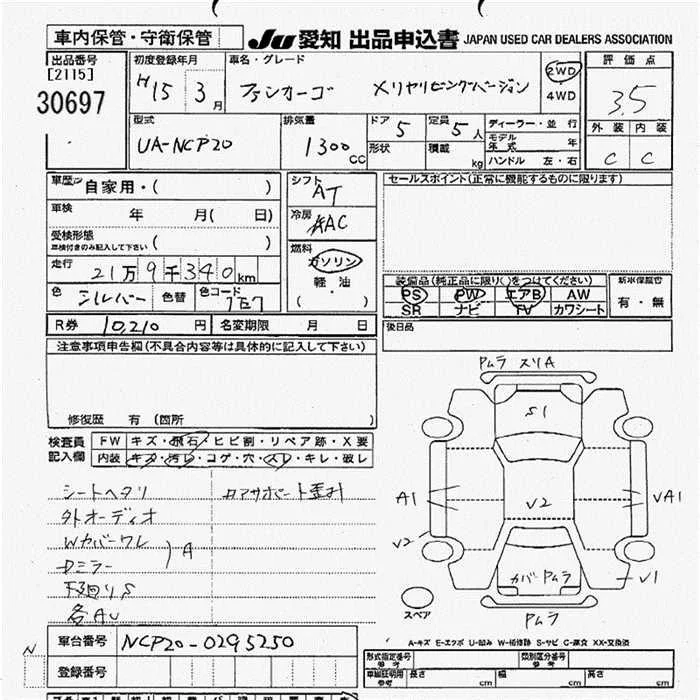 車内保管・守衛保管
JU 愛知 出品申込書 JAPAN USED CAR DEALERS ASSOCIATION
出品番号
[2115]
30697
初度登録年月
H15 3月
車名・グレード
ファンカーゴ
2WD
4WD
評価点
3.5
外装 内装
C C
型式
UA-NCP20
排気量
1300 CC
ドア 5
形状
定員 5人
積載 kg
ディーラー・並行
モデル年式 年
ハンドル 左・右
車歴 自家用・( )
車検 年 月( 日)
受検形態
車検付きのみ記入して下さい ( )
走行 21万9千340km
色 シルバー 色替 色コード 1E7
シフト AT
冷房 AAC
燃料
ガソリン
軽・油
( )
セールスポイント(正常に機能するものに限ります)
装備品(純正品に限り○をつけてください)
PS PW エアB AW
SR ナビ TV カワシート
新車保証書
有・無
後日品
R券 10,210円 名変期限 月 日
注意事項申告欄(不具合内容等は具体的に記入して下さい)
修復歴 有 (箇所 )
検査員
記入欄
FW キズ・飛石・ヒビ割・リペア跡・X要
内装 キズ・汚レ・コゲ・穴・スレ・キレ・破レ
シートヘタリ
外オーディオ
Wカバーワレ
Dミラー
A
下廻りS
各AU
PムラスリA
S1
A1
V2
V2
VA1
V1
カバPムラ
Pムラ
スペア
A-キズ E-エクボ U-凹み W-補修跡 S-サビ C-腐食 XX-交換済
N
車台番号 NCP20-0295250
登録番号
形式指定番号
参考
類別区分番号
参考
車庫証明用
参考
長さ cm 幅 cm 高さ cm